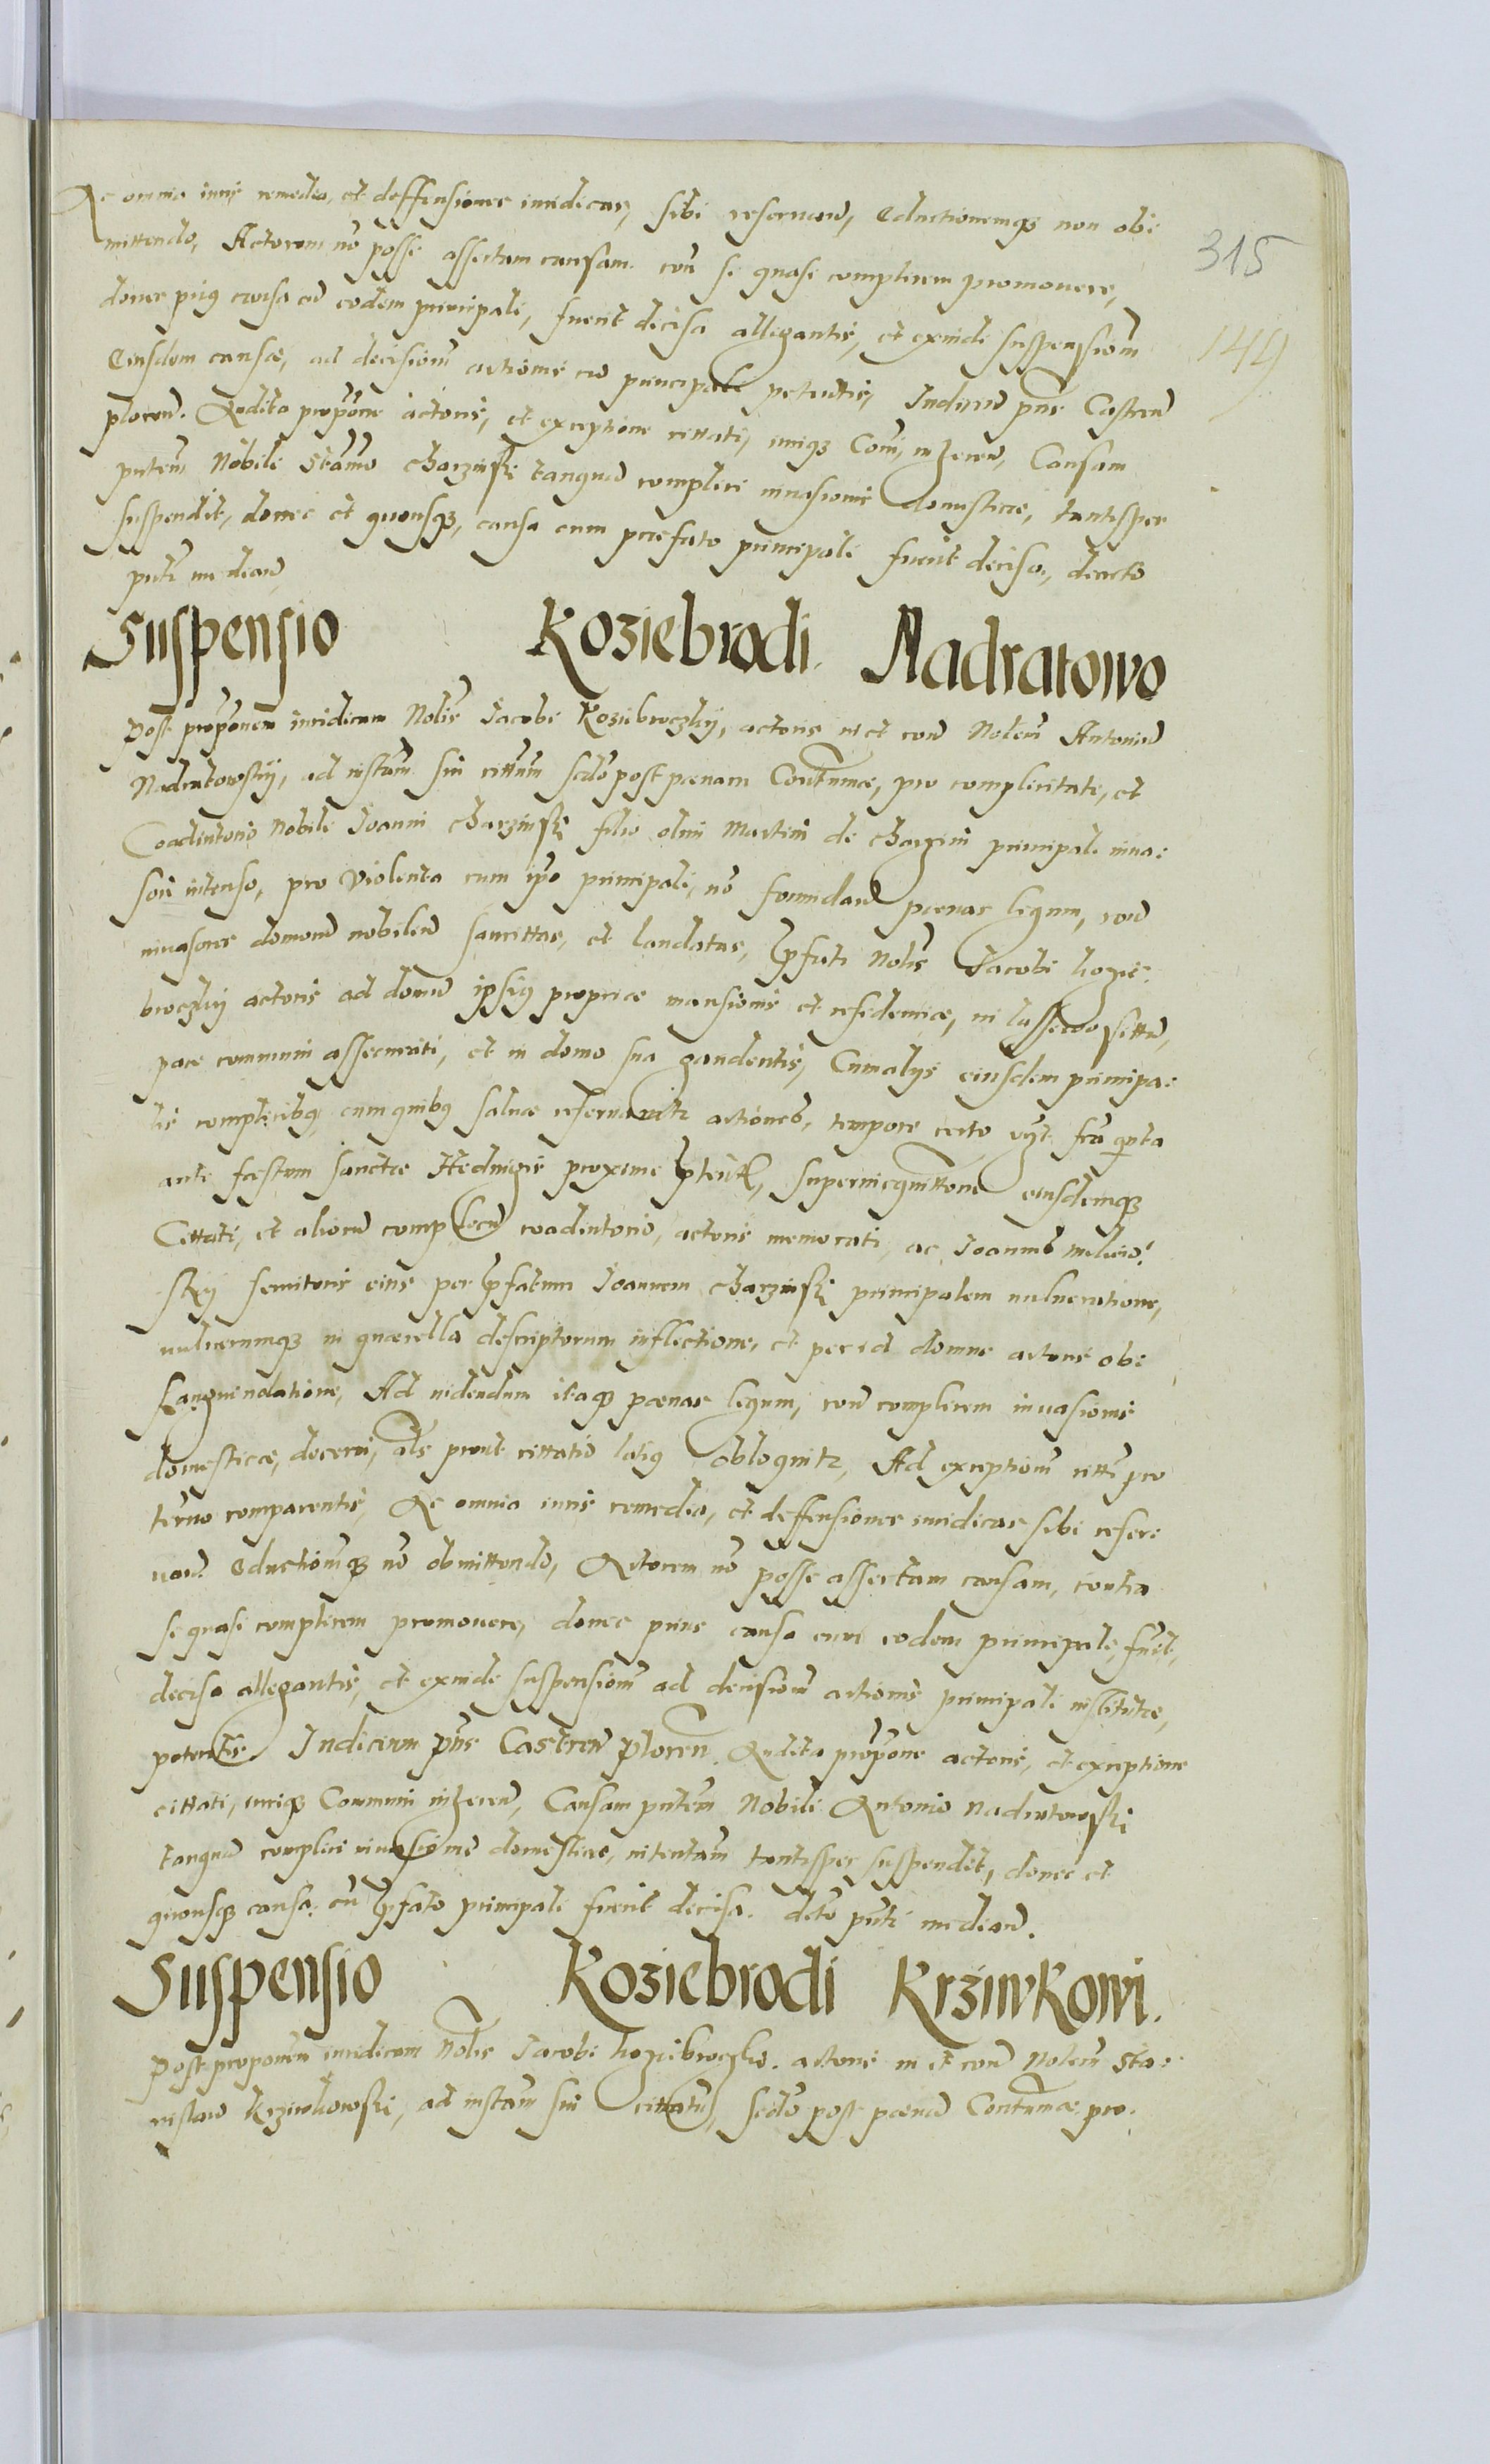 Ac omnia iuris remedia, et deffensiones iuridicas, sibi reseruan, Eductionemq3 non ob:
mittendo, Actorem no posse assertam causam con se quasi complicem promouere,
donec prius causa cu eodem principali, fuerit decisa allegantis, et exinde suspensionem
Eiusdem causæ, ad decisionem actionis cu principale petentis, Iudicium pns Castren
plocen. Audita propone actoris, et exceptione cittati, iuriq3 Coni, inherens, Causam
pntem Nobili Stanislao Charzinski tanquam complici inuasionis domesticæ, tantisper
suspendit, donec et quousq3, causa cum præfato principali fuerit decisa, decreto
pnti median
Suspensio Koziebrodi Nadratowo
Post proponem iuridicam Nobilis Jacobi Koziebroczky, actoris in et con Nobilem Antonium
Nadratowsky, ad instam sui cittum scdo post pœnam Contumae, pro complicitate, et
Coadiutorio Nobili Joanni Charzinski filio olim Martini de Charzini principali inua:
sori intenso, pro violenta cum ipo principali, no formidan pœnas legum, con
inuasores domorum nobilium sancittas, et laudatas, pfati Nobilis Jacobi Kozie:
broczky actoris ad domum ipsius propriæ mansionis et residentiæ, in sittam,
pace communi assecurati, et in domo sua gaudentis, Cum alys eiusdem principa:
lis complicibus, cum quibus saluæ reseruantur actiones, tempore certo vzt feria quarta
ante festum Sanctæ Heduigis proxime pterita, superuicequittone eiusdemq3
Cittati, et aliorum complicum coadiutorio, actoris memorati, ac Joannis
sky seruitoris eius per pfatum Joannem Charzinski principalem vulneratione,
vulnerumq3 in quærella descriptorum inflectione, et per id domus actoris ob:
sanguendatione, Ad videndum itaq3 pœnas legum, con complicem inuasionis
domesticæ, decerni, als prout cittatio latius obloquitr, Ad exceptionem citti pro
termo comparentis, Ac omnia iuris remedia, et deffensiones iuridicas sibi reser:
uan. Eductionemq3 no obmittendo, Actorem no posse assertam causam, contra
se quasi complicem promouere, donec prius causa cum eodem principale, fuerit,
decisa allegantis, et exinde suspensionem ad decisionem actionis principali institutæ,
petentis Iudicium pns Castren plocen. Audita propone actoris, et exceptione
cittati, iuriq3 Communi inheren, Causam pntem Nobili Antonio Nadratowski
tanquam complici inuasionis domesticæ, intentam tantisper suspendit, donec et
quousq3 causa, cu pfato principali fuerit decisa. decreto pnti median.
Suspensio Koziebrodi Krziwkowi.
Post proponem iuridicam Nobilis Jacobi Koziebroczki. actoris in et con Nobilem Sta:
nislaum Krziwkowski, ad instam sui cittatum, scdo post pœnam Contumae pro:
315
144